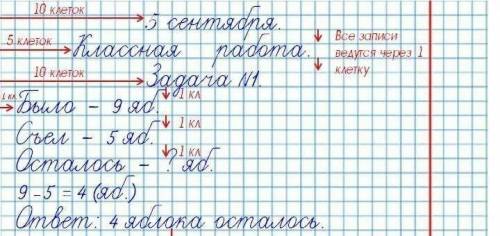 10 клеток
5 сентября.
5 клеток
Классная работа.
Все записи
ведутся через 1
клетку
10 клеток
Задача №1.
1 кл
Было – 9 яб.
1 кл
Съел – 5 яб.
1 кл
Осталось – ? яб.
1 кл
9 – 5 = 4 (яб.)
Ответ: 4 яблока осталось.